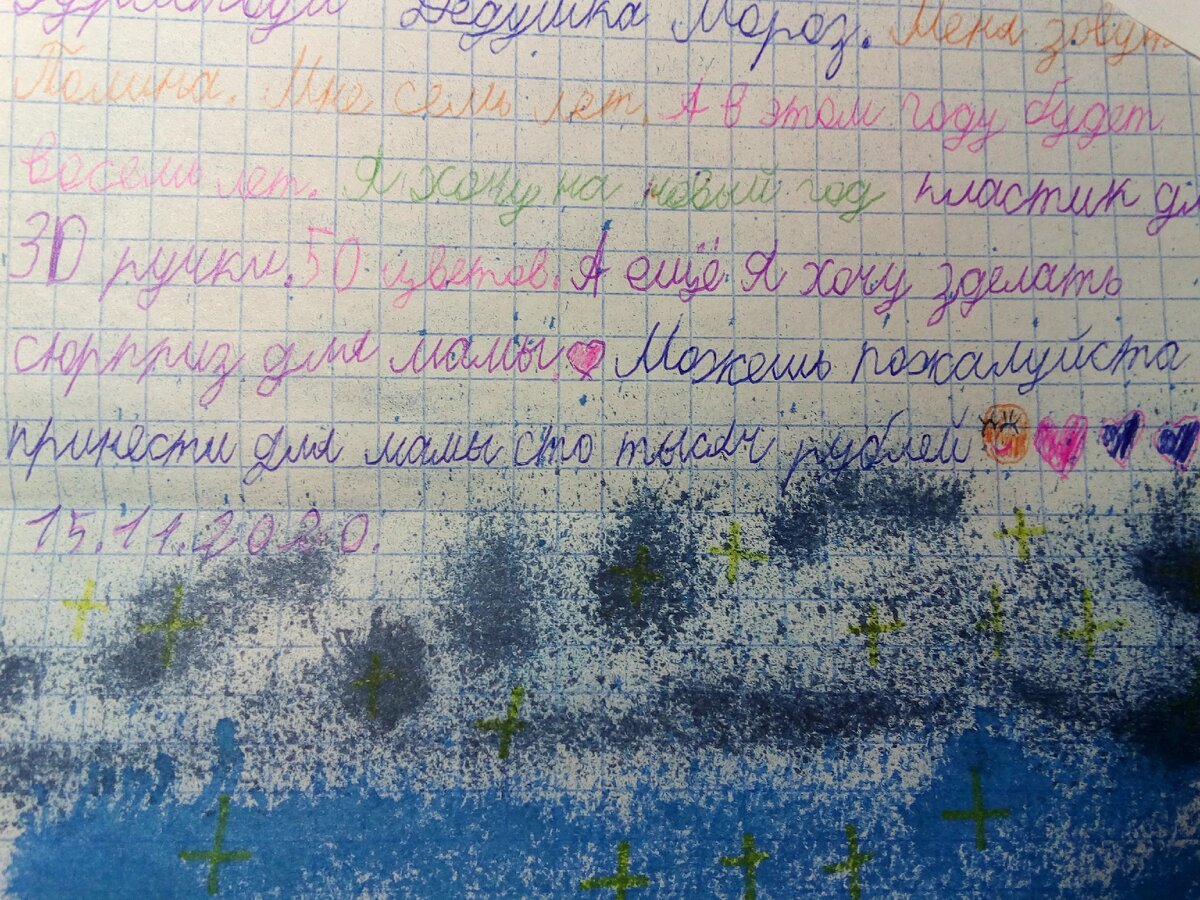 Дедушка Мороз. Меня зовут
Полина. Мне семь лет. А в этом году будет
восемь лет. Я хочу на новый год пластик дл
3D ручки. 50 цветов. А ещё я хочу зделать
сюрприз для мамы. Можешь пожалуйста
принести для мамы сто тысяч рублей
15.11.2020.